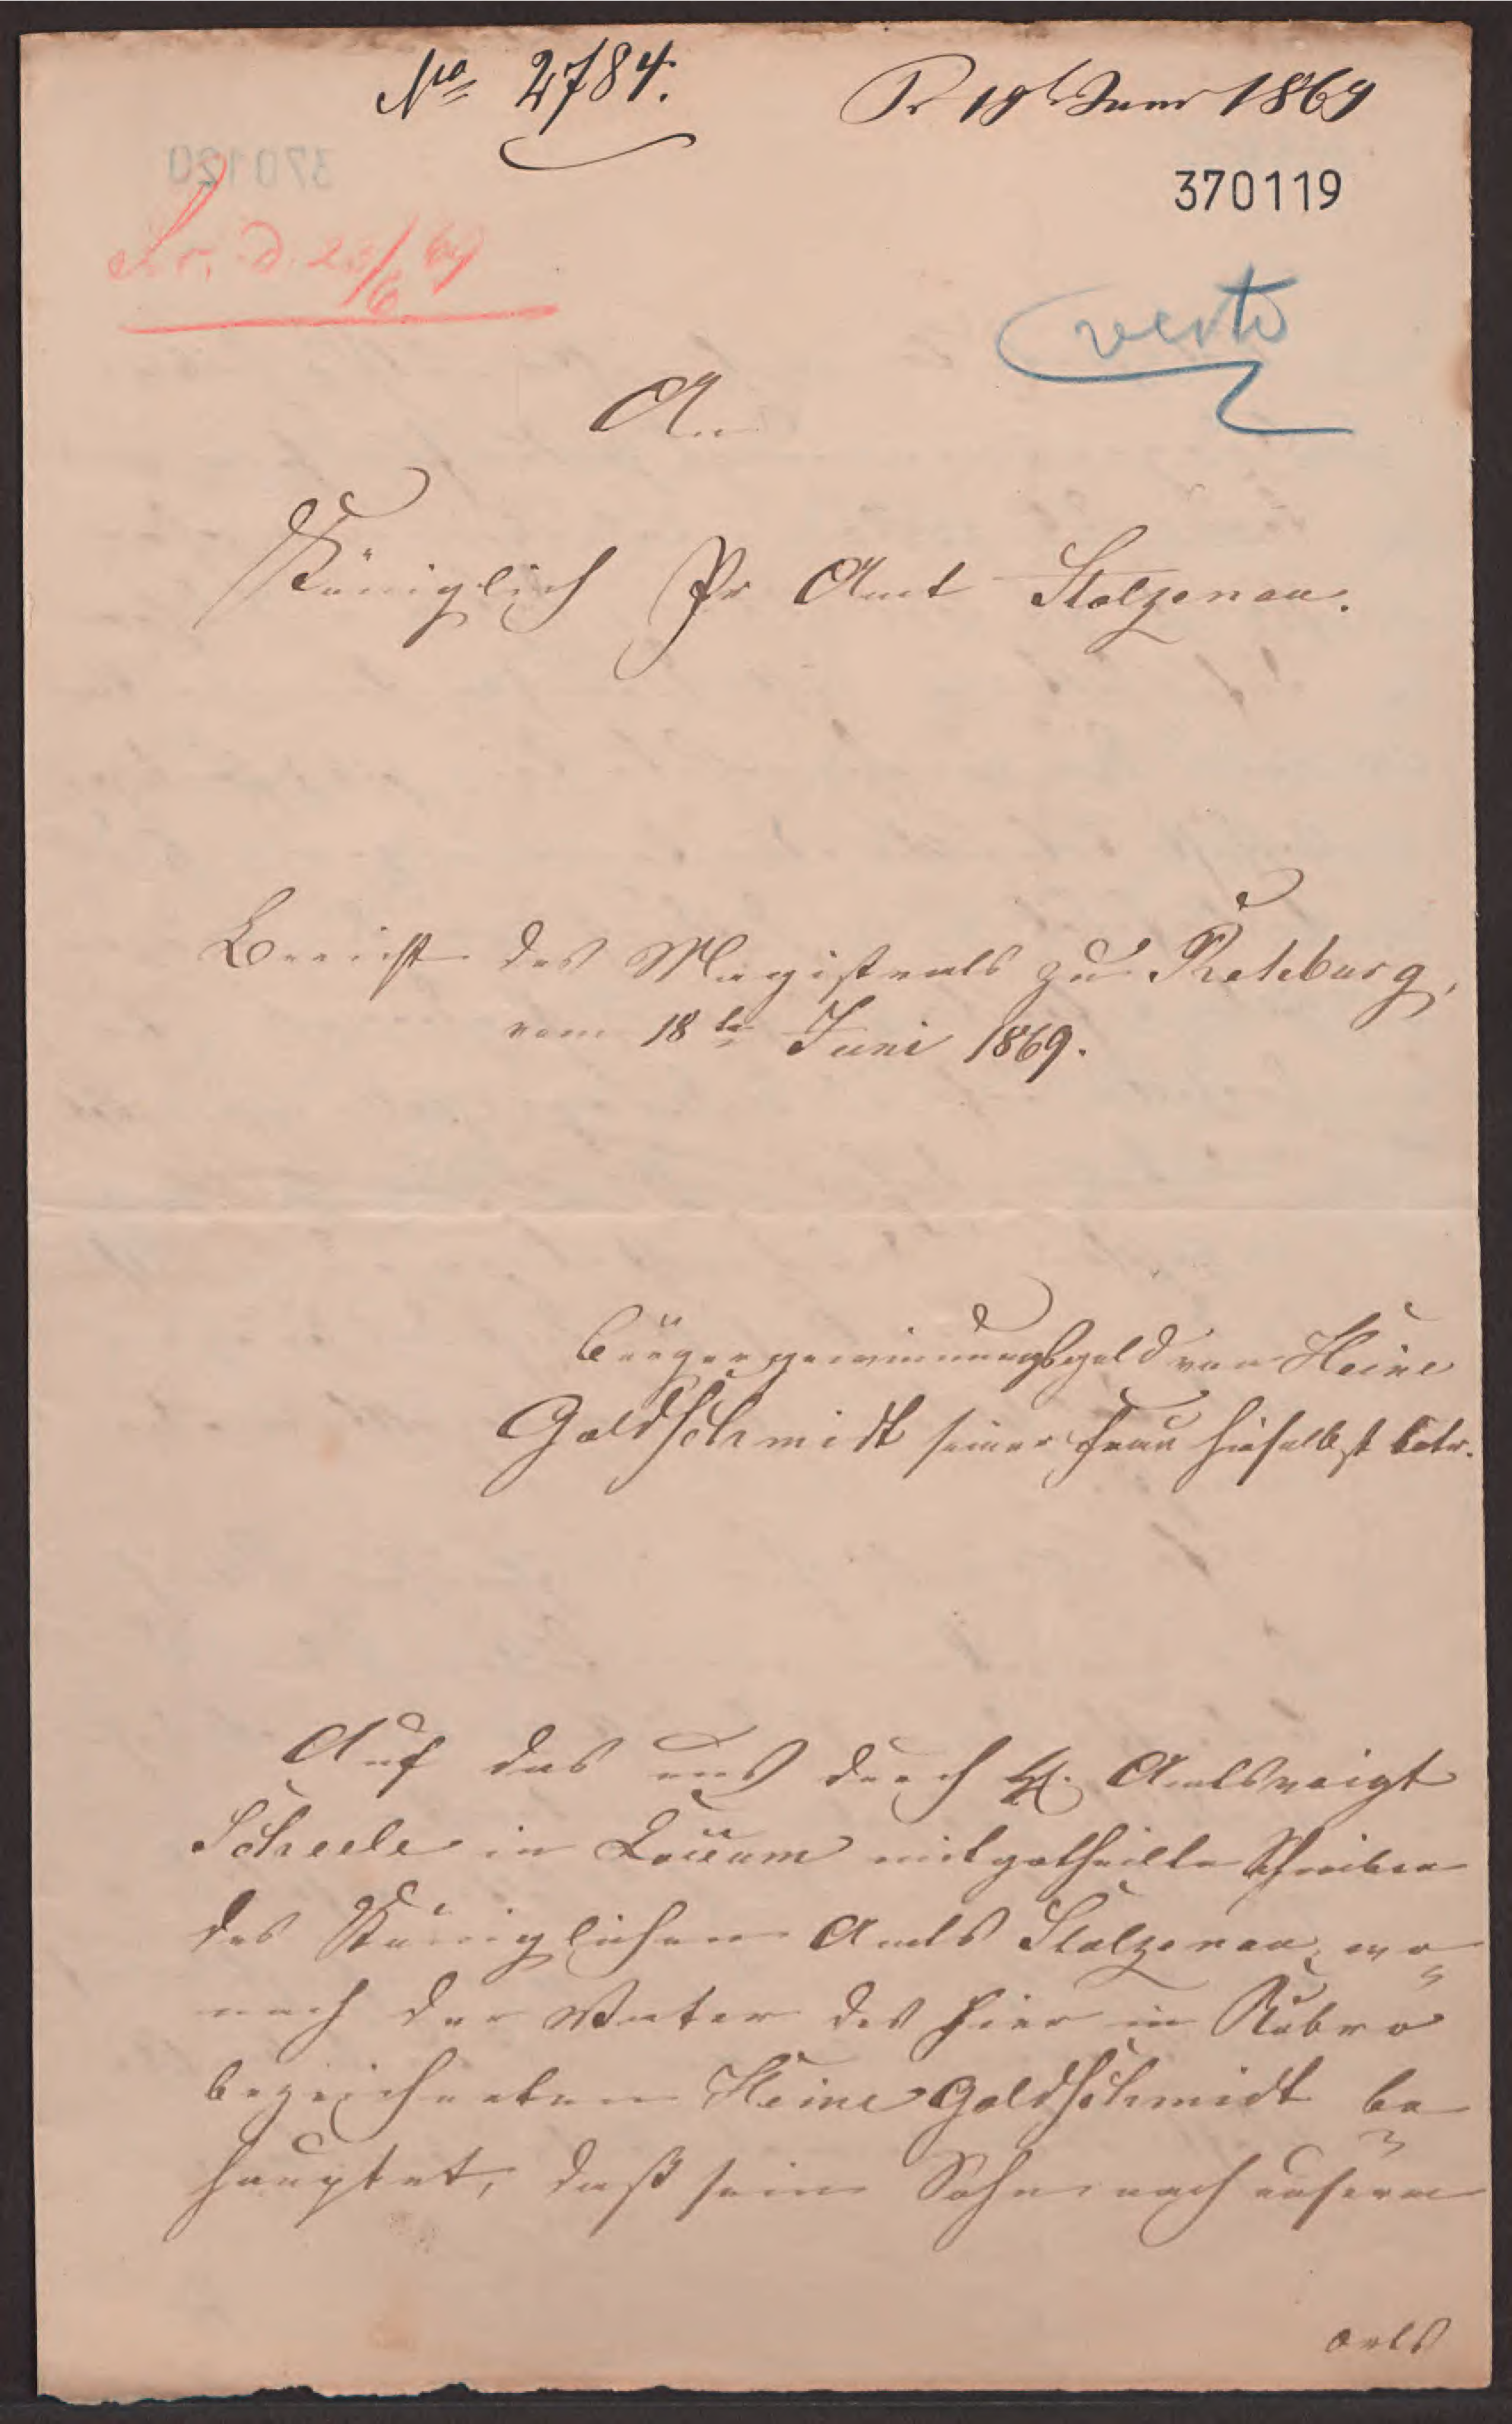 No 2784.
Pr 19t Juni 1869
370119
370120
Pr. d. 23/6 69
verte
An
Königlich Pr Amt Stolzenau.
Bericht des Magistrats zu Rehburg,
vom 18ten Juni 1869.
Bürgergewinnungsgeld von Heine
Goldschmidt seiner Frau hieselbst betr.
Auf das uns durch H. Amtsvoigt
Scheele in Loccum mitgetheilte Schreiben
des Königlichen Amts Stolzenau, wo=
nach der Vater des hier in Rubro
bezeichneten Heine Goldschmidt be=
hauptet, daß sein Sohn nach unserm
orts